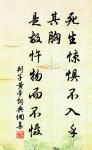 死生惊惧不入乎
其胸
是故忤物而不慑
列子黄帝词典调集